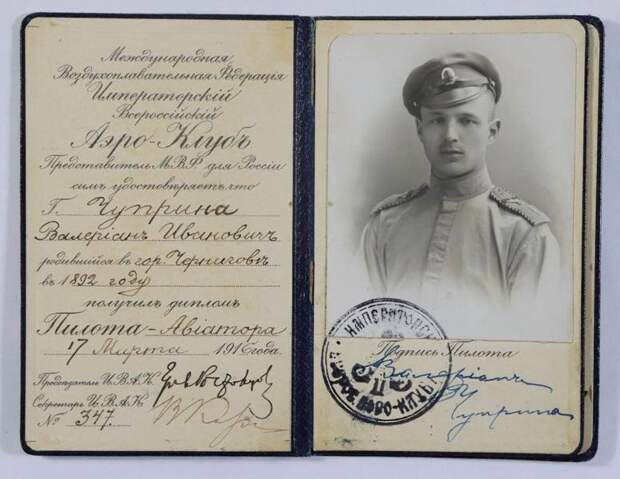 Международная
Воздухоплавательная Федерація
Императорскій
Всероссійскій
Аэро-Клубъ
Представитель М.В.Ф. для Россіи
симъ удостовѣряетъ что
Г. Чуприна
Валеріанъ Ивановичъ
родившійся въ гор. Черниговѣ
въ 1892 году
получилъ дипломъ
Пилота-Авіатора
17 Марта 1916 года.
Предсѣдатель И.В.А.К.
Секретарь И.В.А.К.
№ 347.
Подпись Пилота
Валеріанъ
Чуприна